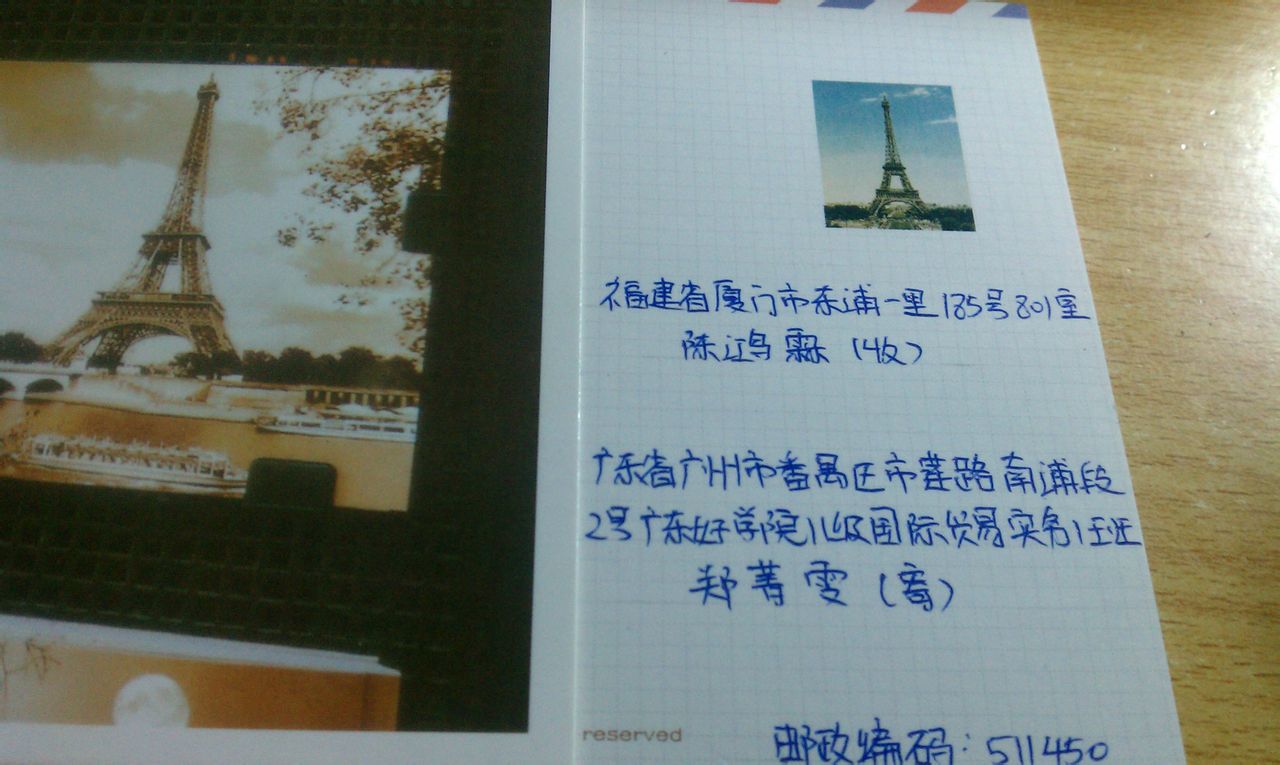 福建省厦门市东浦一里185号801室
陈鸿霖（收）
广东省广州市番禺区市莲路南浦段
2号广东女子学院11级国际贸易实务1班
郑菁雯（寄）
reserved
邮政编码：511450